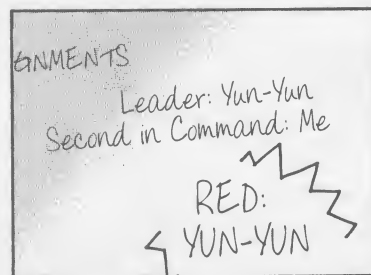 GNMENTS
Leader: Yun-Yun
Second in Command: Me
RED:
YUN-YUN